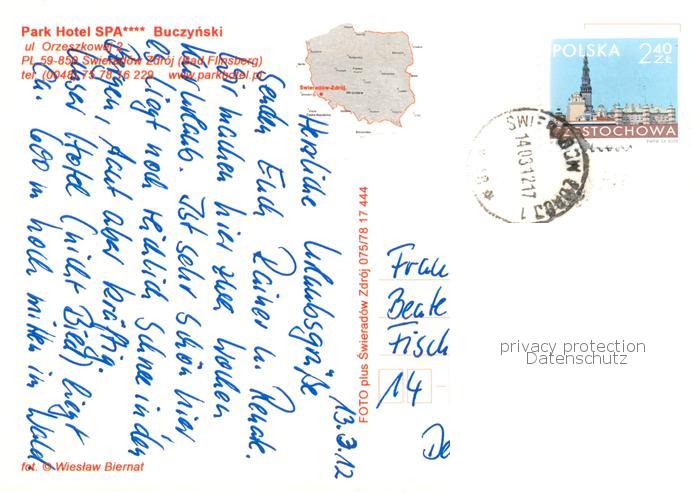 Park Hotel SPA**** Buczyński
ul Orzeszkowej 2
PL 59-850 Świeradów Zdrój (Bad Flinsberg)
tel (0048) 75 78 16 229 www.parkhotel.pl
Świeradów-Zdrój
POLSKA 2 40 ZŁ
CZĘSTOCHOWA
14.03.12 17
13.3.12
Herzliche Urlaubsgrüße
Senden Euch Rainer u. Renate.
Wir machen hier zwei Wochen
Kururlaub. Ist sehr schön hier
es liegt noch reichlich Schnee in den
Bergen, taut aber kräftig.
Unser Hotel (nicht Bild) liegt
Ca. 600 m hoch mitten im Wald
FOTO plus Świeradów Zdrój 075/78 17 444
Frau
Beate
Fisch
14
De
privacy protection
Datenschutz
fot. © Wiesław Biernat